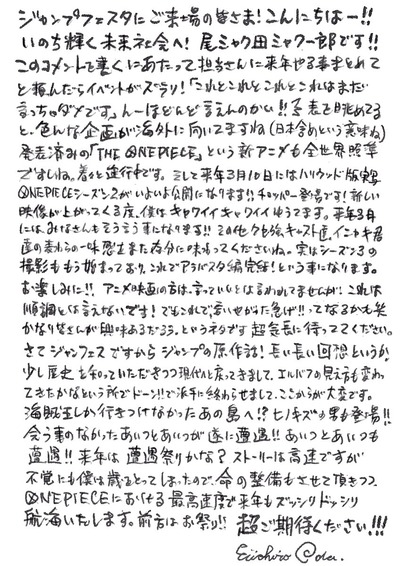 ジャンプフェスタにご来場の皆さま!こんにちはー!!
いのち輝く未来社会へ!尾ミャク田ミャクー郎です!!
このコメントを書くにあたって担当さんに来年やる事まとめて
と頼んだらイベントがズラリ!「これとこれとこれとこれはまだ
言っちゃダメです」んーほとんど言えんのかい!!予表を眺めてる
と、色んな企画が海外に向いてますね(日本含めという意味ね)
発表済みの「THE ONE PIECE」という新アニメも全世界照準
ですしね。着々と進行中です。そして来年3月10日にはハリウッド版実写
ONE PIECEシーズン2がいよいよ公開になります!!チョッパー登場です!新しい
映像が上がってくる度、僕はキャワイイキャワイイゆうてます。来年3月
にはみなさんもそう言う事になります!!その他クセ強キャスト達、イニャキ君
達の変わらぬ一味感をまた存分に味わってくださいね。実はシーズン3の
撮影ももう始まっており、これでアラバスタ編完結!という事になります。
お楽しみに!!アニメ映画の方は、言っていいとは言われてませんが、これは
順調とは言えないです!でもこれで言いせかした急げ!!ってなるかも笑
かなり皆さんが興味あるだろう、というネタです超気長に待っててください。
さてジャンフェスですからジャンプの原作話!長い長い回想というか
少し歴史を知っていただきつつ現代に戻ってきまして、エルバフの見え方も変わっ
てきたかなという所でドーン!!で派手に終わらせまして、ここからが大変です。
海賊王しか行きつけなかったあの島へ!?ヒノキズの男も登場!!
会う事のなかったあいつとあいつが遂に遭遇!!あいつとあいつも
遭遇!!来年は遭遇祭りかな?ストーリーは高速ですが
不覚にも僕は歳をとってしまったので、命の整備もさせて頂きつつ、
ONE PIECEにおける最高速度で来年もズッシリドッシリ
航海いたします。前方はお祭り!!超ご期待ください!!!
Eiichiro Oda.